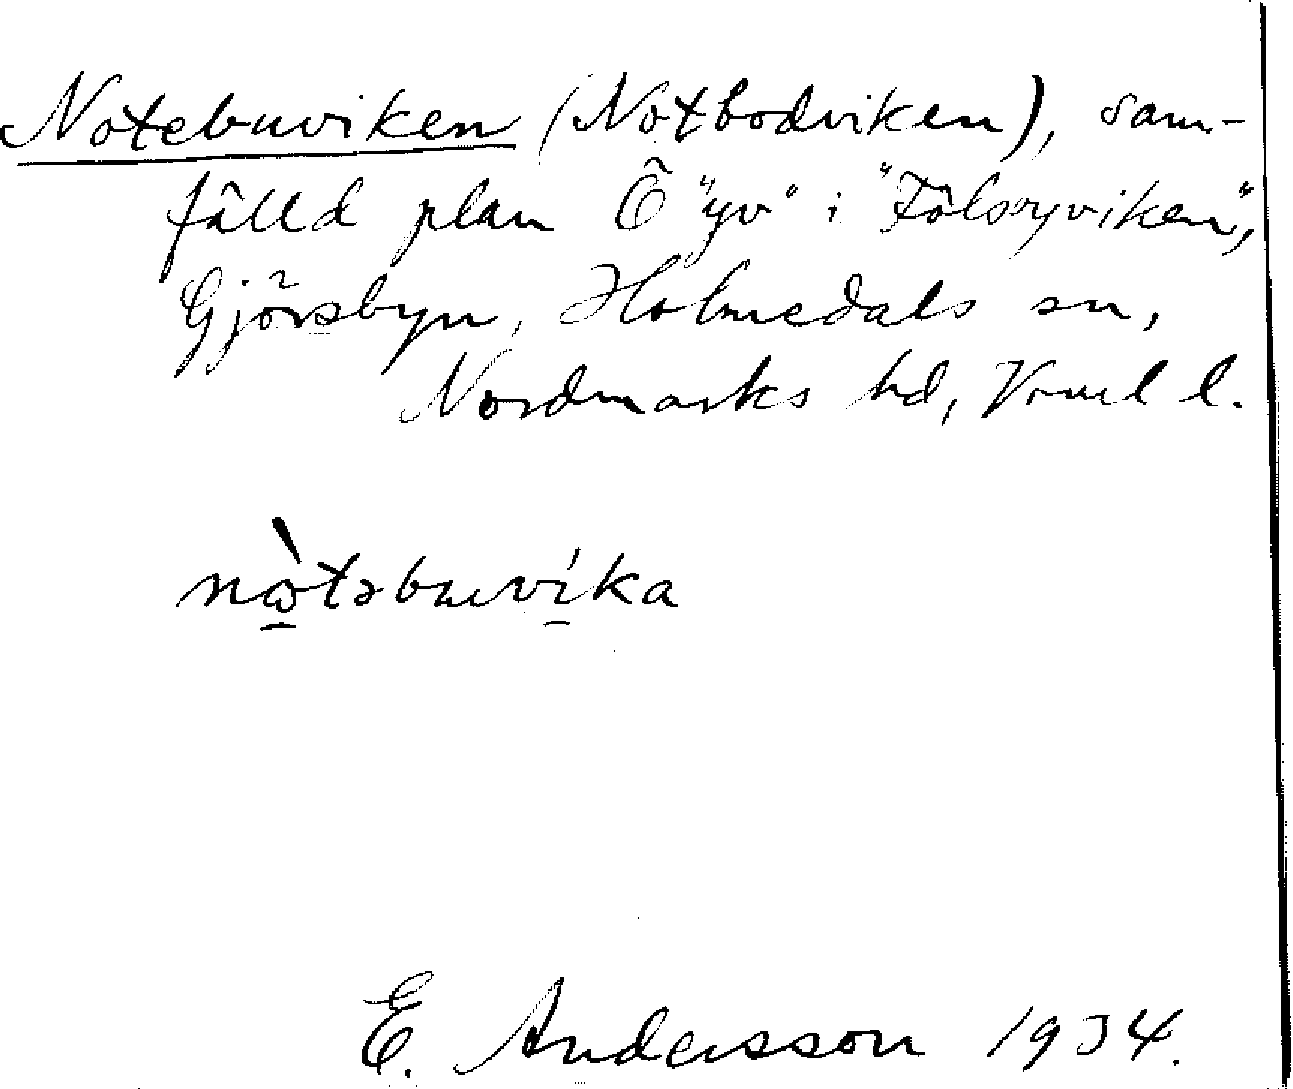 Notebuviken (Notbodviken), sam-
fälld plan Ö "yv" i "Fölsryviken",
Gjörsbyn, Holmedals sn,
Nordmarks hd, Vrml l.
nòtəbuvíka
E. Andersson 1934.